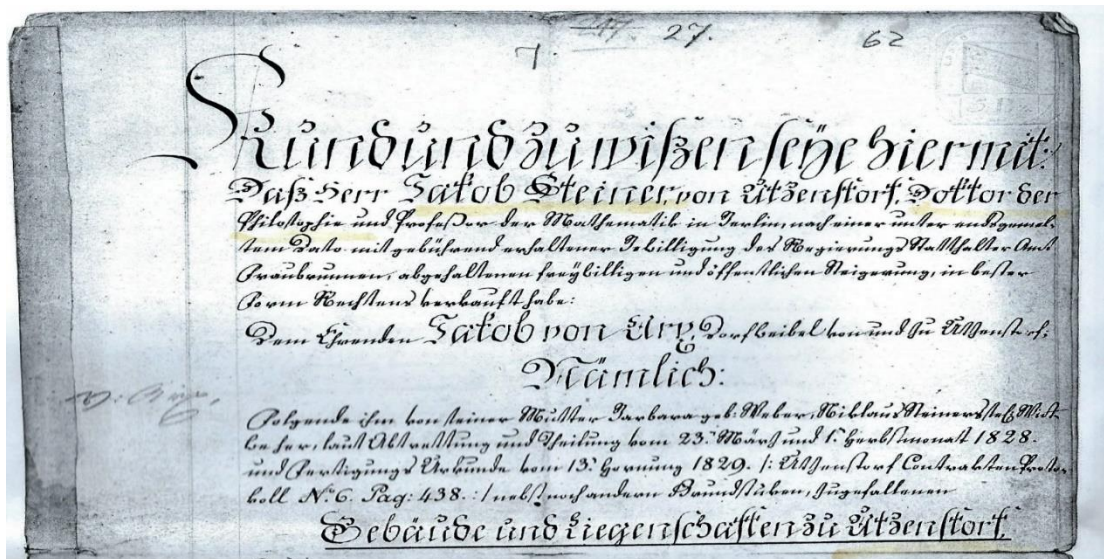 7. 47 27. 62
Kund und zu wißen seÿe hiermit:
Daß Herr Jakob Steiner, von Utzenstorf, Doktor der
Philosophie und Profeßor der Mathematik in Berlin, nach einer unter endsgemel-
tem Dato mit gebührend erhaltener Bewilligung des Regierungs Statthalter Amt
Fraubrunnen, abgehaltenen freywilligen und öffentlichen Steigerung, in bester
Form Rechtens verkauft habe:
Dem Ehrenden Jakob von Arx, Dorfweibel von und zu Utzenstorf;
Nämlich:
v: Arx.
Folgende ihm von seiner Mutter Barbara geb: Weber, Niklaus Steiners sel: Witt-
we her, laut Abtrettung und Theilung vom 23. März und 1. Herbstmonat 1828.
und Fertigungs Urkunde vom 13. Hornung 1829. /: Utzenstorf Contrakten Proto-
koll No. 6. Pag: 438. :/ nebst noch andern Grundstüken, zugefallenen
Gebäude und Liegenschaften zu Utzenstorf,